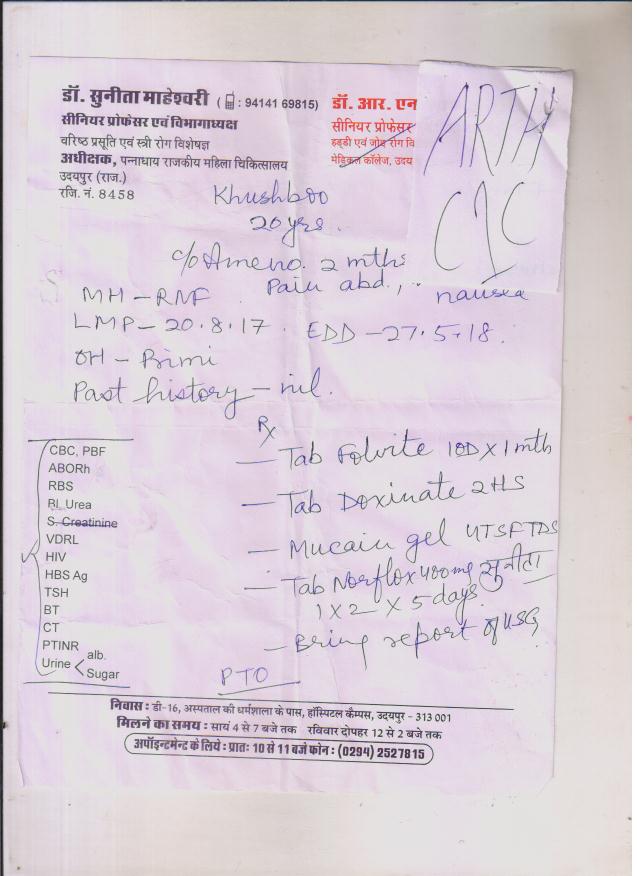 डॉ. सुनीता माहेश्वरी ( : 94141 69815)
सीनियर प्रोफेसर एवं विभागाध्यक्ष
वरिष्ठ प्रसूति एवं स्त्री रोग विशेषज्ञ
अधीक्षक, पन्नाधाय राजकीय महिला चिकित्सालय
उदयपुर (राज.)
रजि. नं. 8458
डॉ. आर. एन
सीनियर प्रोफेसर
हड्डी एवं जोड़ रोग वि
मेडिकल कॉलेज, उदय
ARTH
CIC
Khushboo
20 yrs.
c/o Ameno. 2 mths
Pain abd., nausea
MH - RNF
LMP - 20.8.17. EDD - 27.5.18.
OH - Primi
Past history - nil.
Rx
CBC, PBF
ABORh
RBS
Bl. Urea
S. Creatinine
VDRL
HIV
HBS Ag
TSH
BT
CT
PTINR
Urine < alb.
Sugar
- Tab Folvite 1OD x 1 mth
- Tab Doxinate 2HS
- Mucain gel 4TSF TDS
- Tab Norflox 400mg सुनीता
1 x 2 x 5 days
- Bring report of USG
PTO
निवास : डी-16, अस्पताल की धर्मशाला के पास, हॉस्पिटल कैम्पस, उदयपुर - 313 001
मिलने का समय : सायं 4 से 7 बजे तक रविवार दोपहर 12 से 2 बजे तक
अपॉइन्टमेन्ट के लिये : प्रातः 10 से 11 बजे फोन : (0294) 2527815